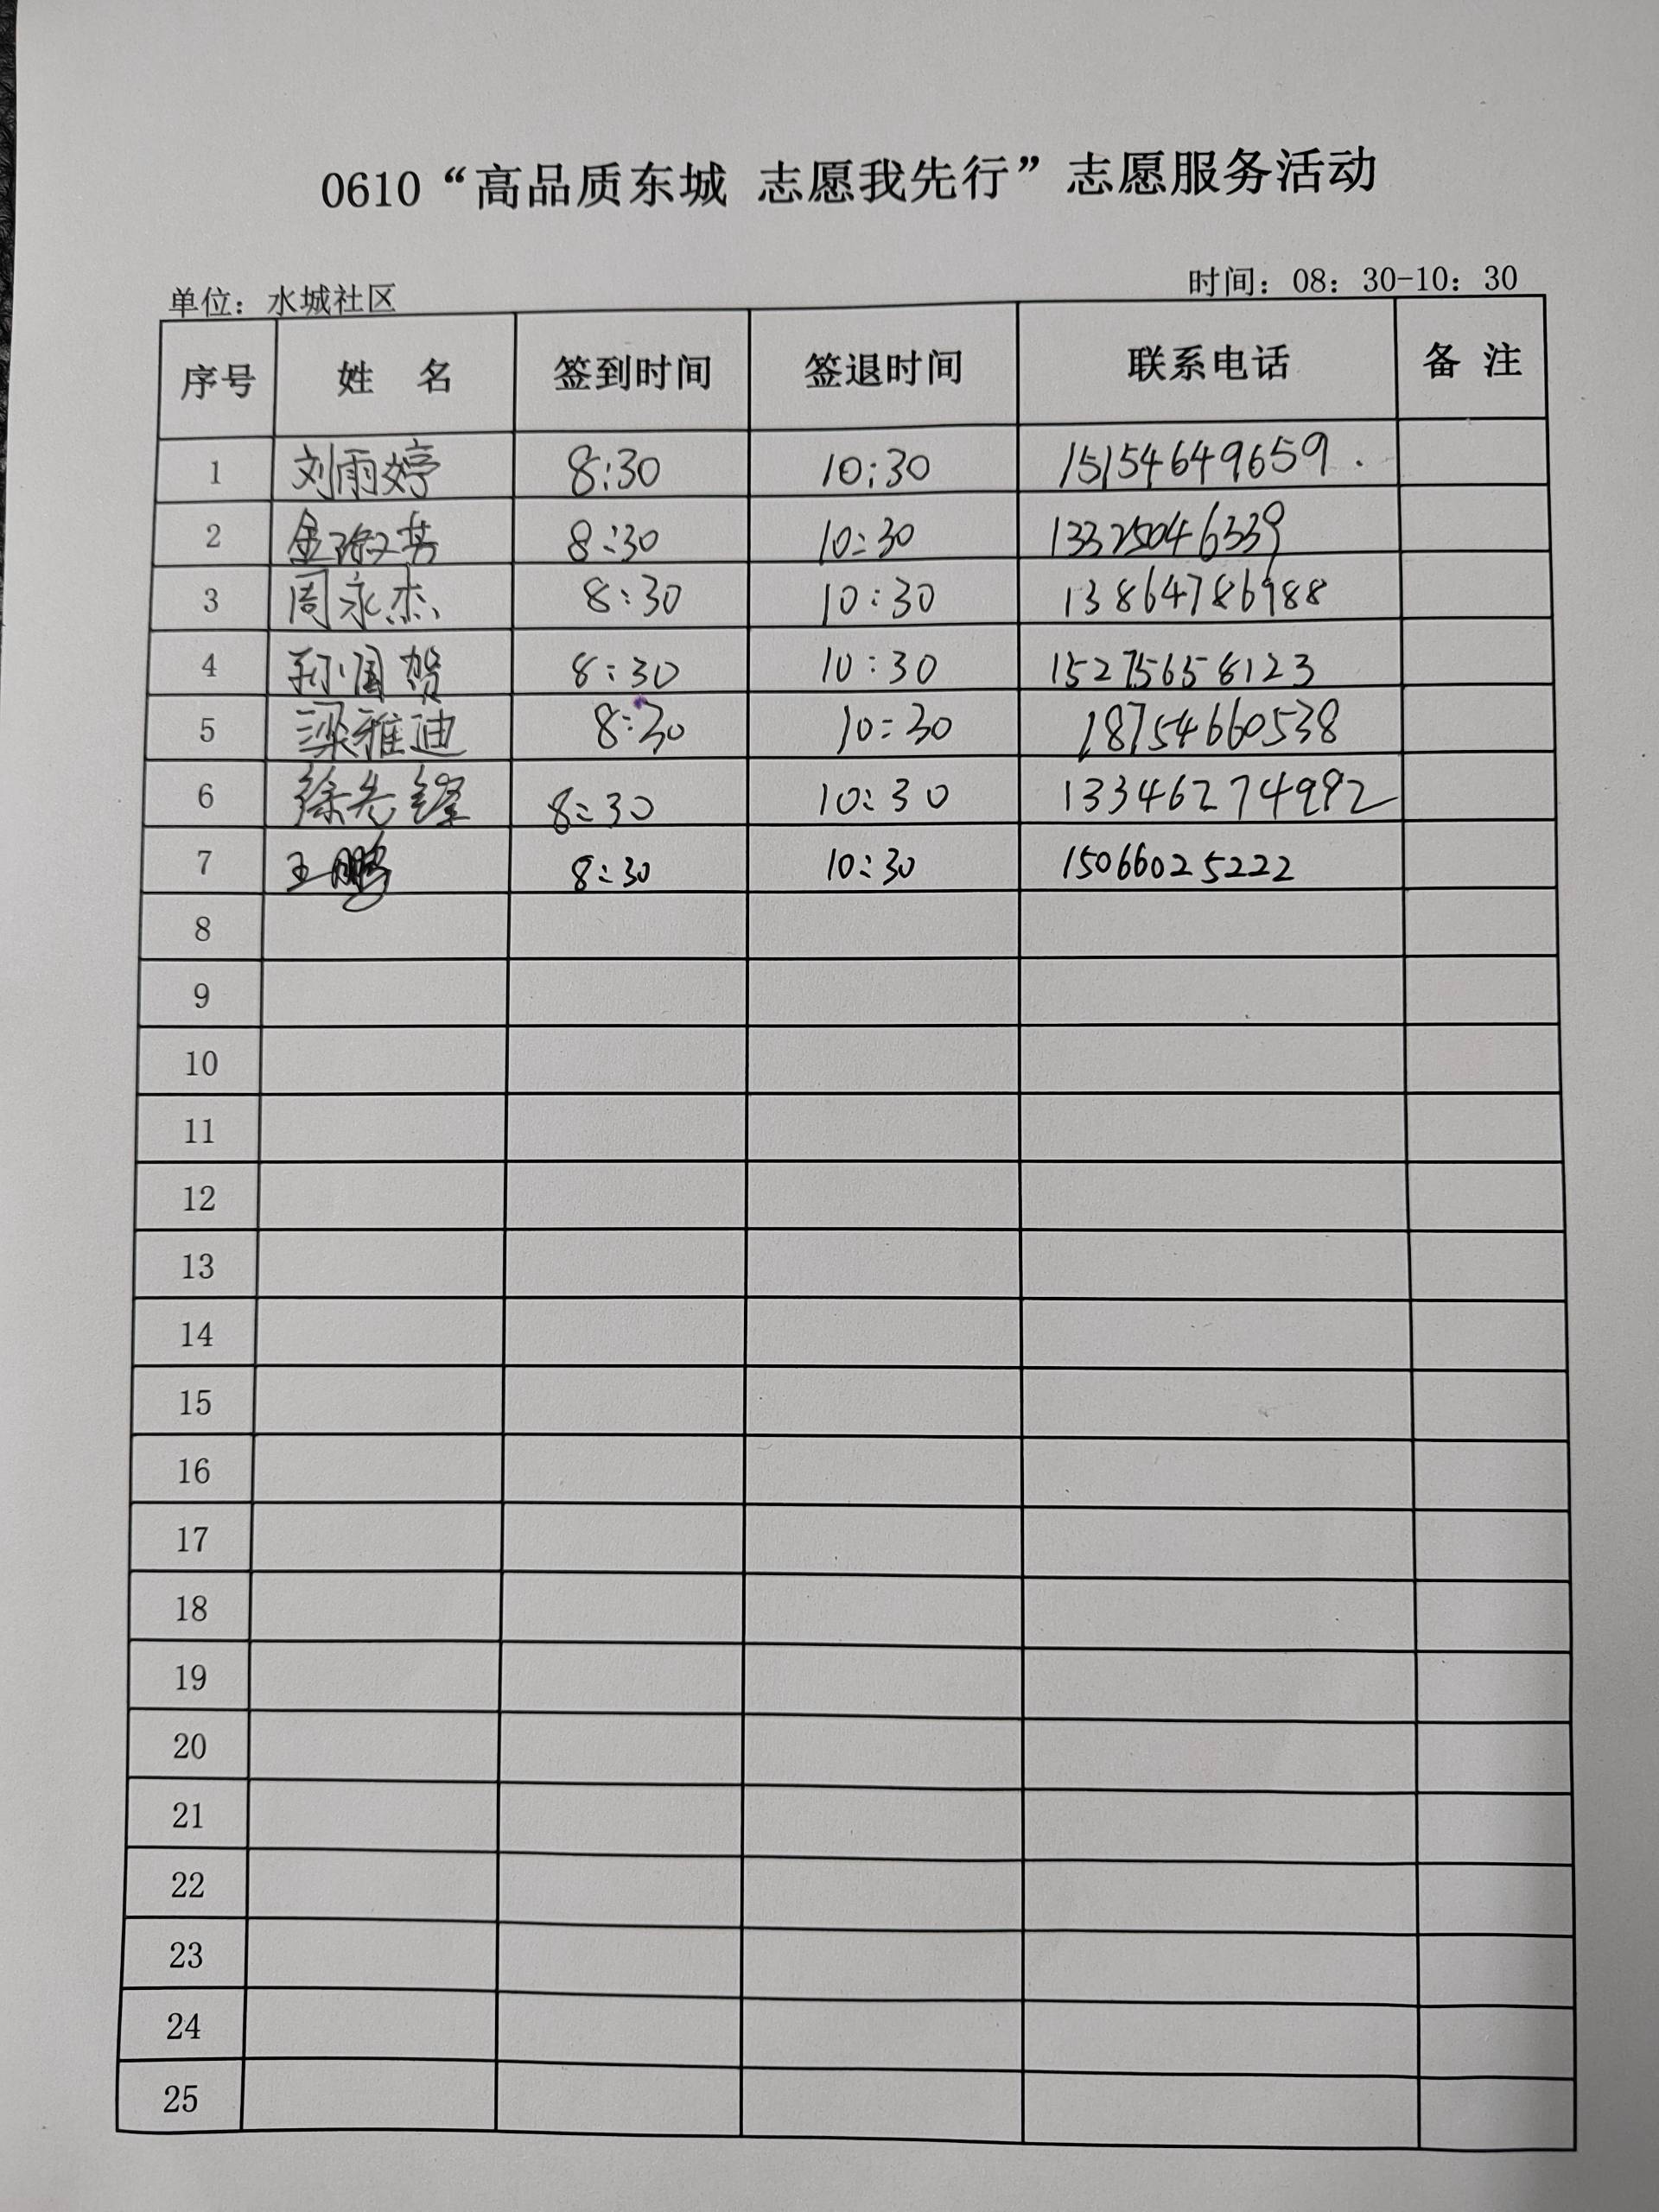 0610“高品质东城 志愿我先行”志愿服务活动
单位：水城社区 时间：08：30-10：30
序号 姓 名 签到时间 签退时间 联系电话 备 注
1 刘雨婷 8:30 10:30 15154649659.
2 8:30 10:30 13325046339
3 周永杰 8:30 10:30 13864786988
4 孙国贺 8:30 10:30 15275658123
5 梁雅迪 8:30 10:30 18754660538
6 徐先锋 8:30 10:30 13346274992
7 王鹏 8:30 10:30 15066025222
8
9
10
11
12
13
14
15
16
17
18
19
20
21
22
23
24
25